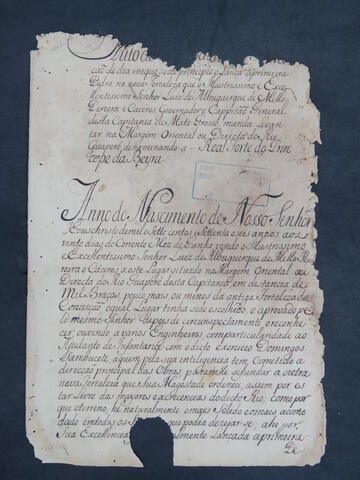 Auto de
ção do dia em que se dá principio e Lança a primeira
Pedra na nova Fortaleza que o Illustrissimo e Exce-
llentissimo Senhor Luiz de Albuquerque de Mello
Pereira e Cáceres, Governador e Cappitão General
desta Capitania de Mato Grosso, manda levan-
tar na Margem Oriental ou Directa do Rio
Guaporé denominando-a = Real Forte do Prin
cepe da Beyra
Anno do Nascimento de Nosso Senhor
de mil e Sette centos e Settenta e seis annos aos
vinte dias do Corrente Mez de Junho vindo o Illustrissimo
e Excellentissimo Senhor Luiz de Albuquerque de Mello Pe-
reira e Cáceres, a este Lugar situado na Margem Oriental ou
Directa do Rio Guaporé desta Capitania em distancia de
Mil Braças pouco mais ou menos da antiga Fortaleza da
Conceição o qual Lugar tinha sido escolhido, e aprovado pe
lo mesmo Senhor depois de circunspectamente o reconhe
cer, ouvindo a varios Engenheiros, com particularidade ao
Ajudante de Infantaria com o dicto exercicio Domingos
Sambucete, aquem pela sua inteligencia tem Comettido a
direcção principal das Obras para nele se fundar a
nova Fortaleza que Sua Magestade ordenou, assim por es
tar Livre das mayores excrecencias do dicto Rio, como por
que o terreno, he naturalmente o mais Solido e o mais acomo
dado em todos os que podia dezejar-se; ahi por
Sua Excellencia lançada a primeira
Pe